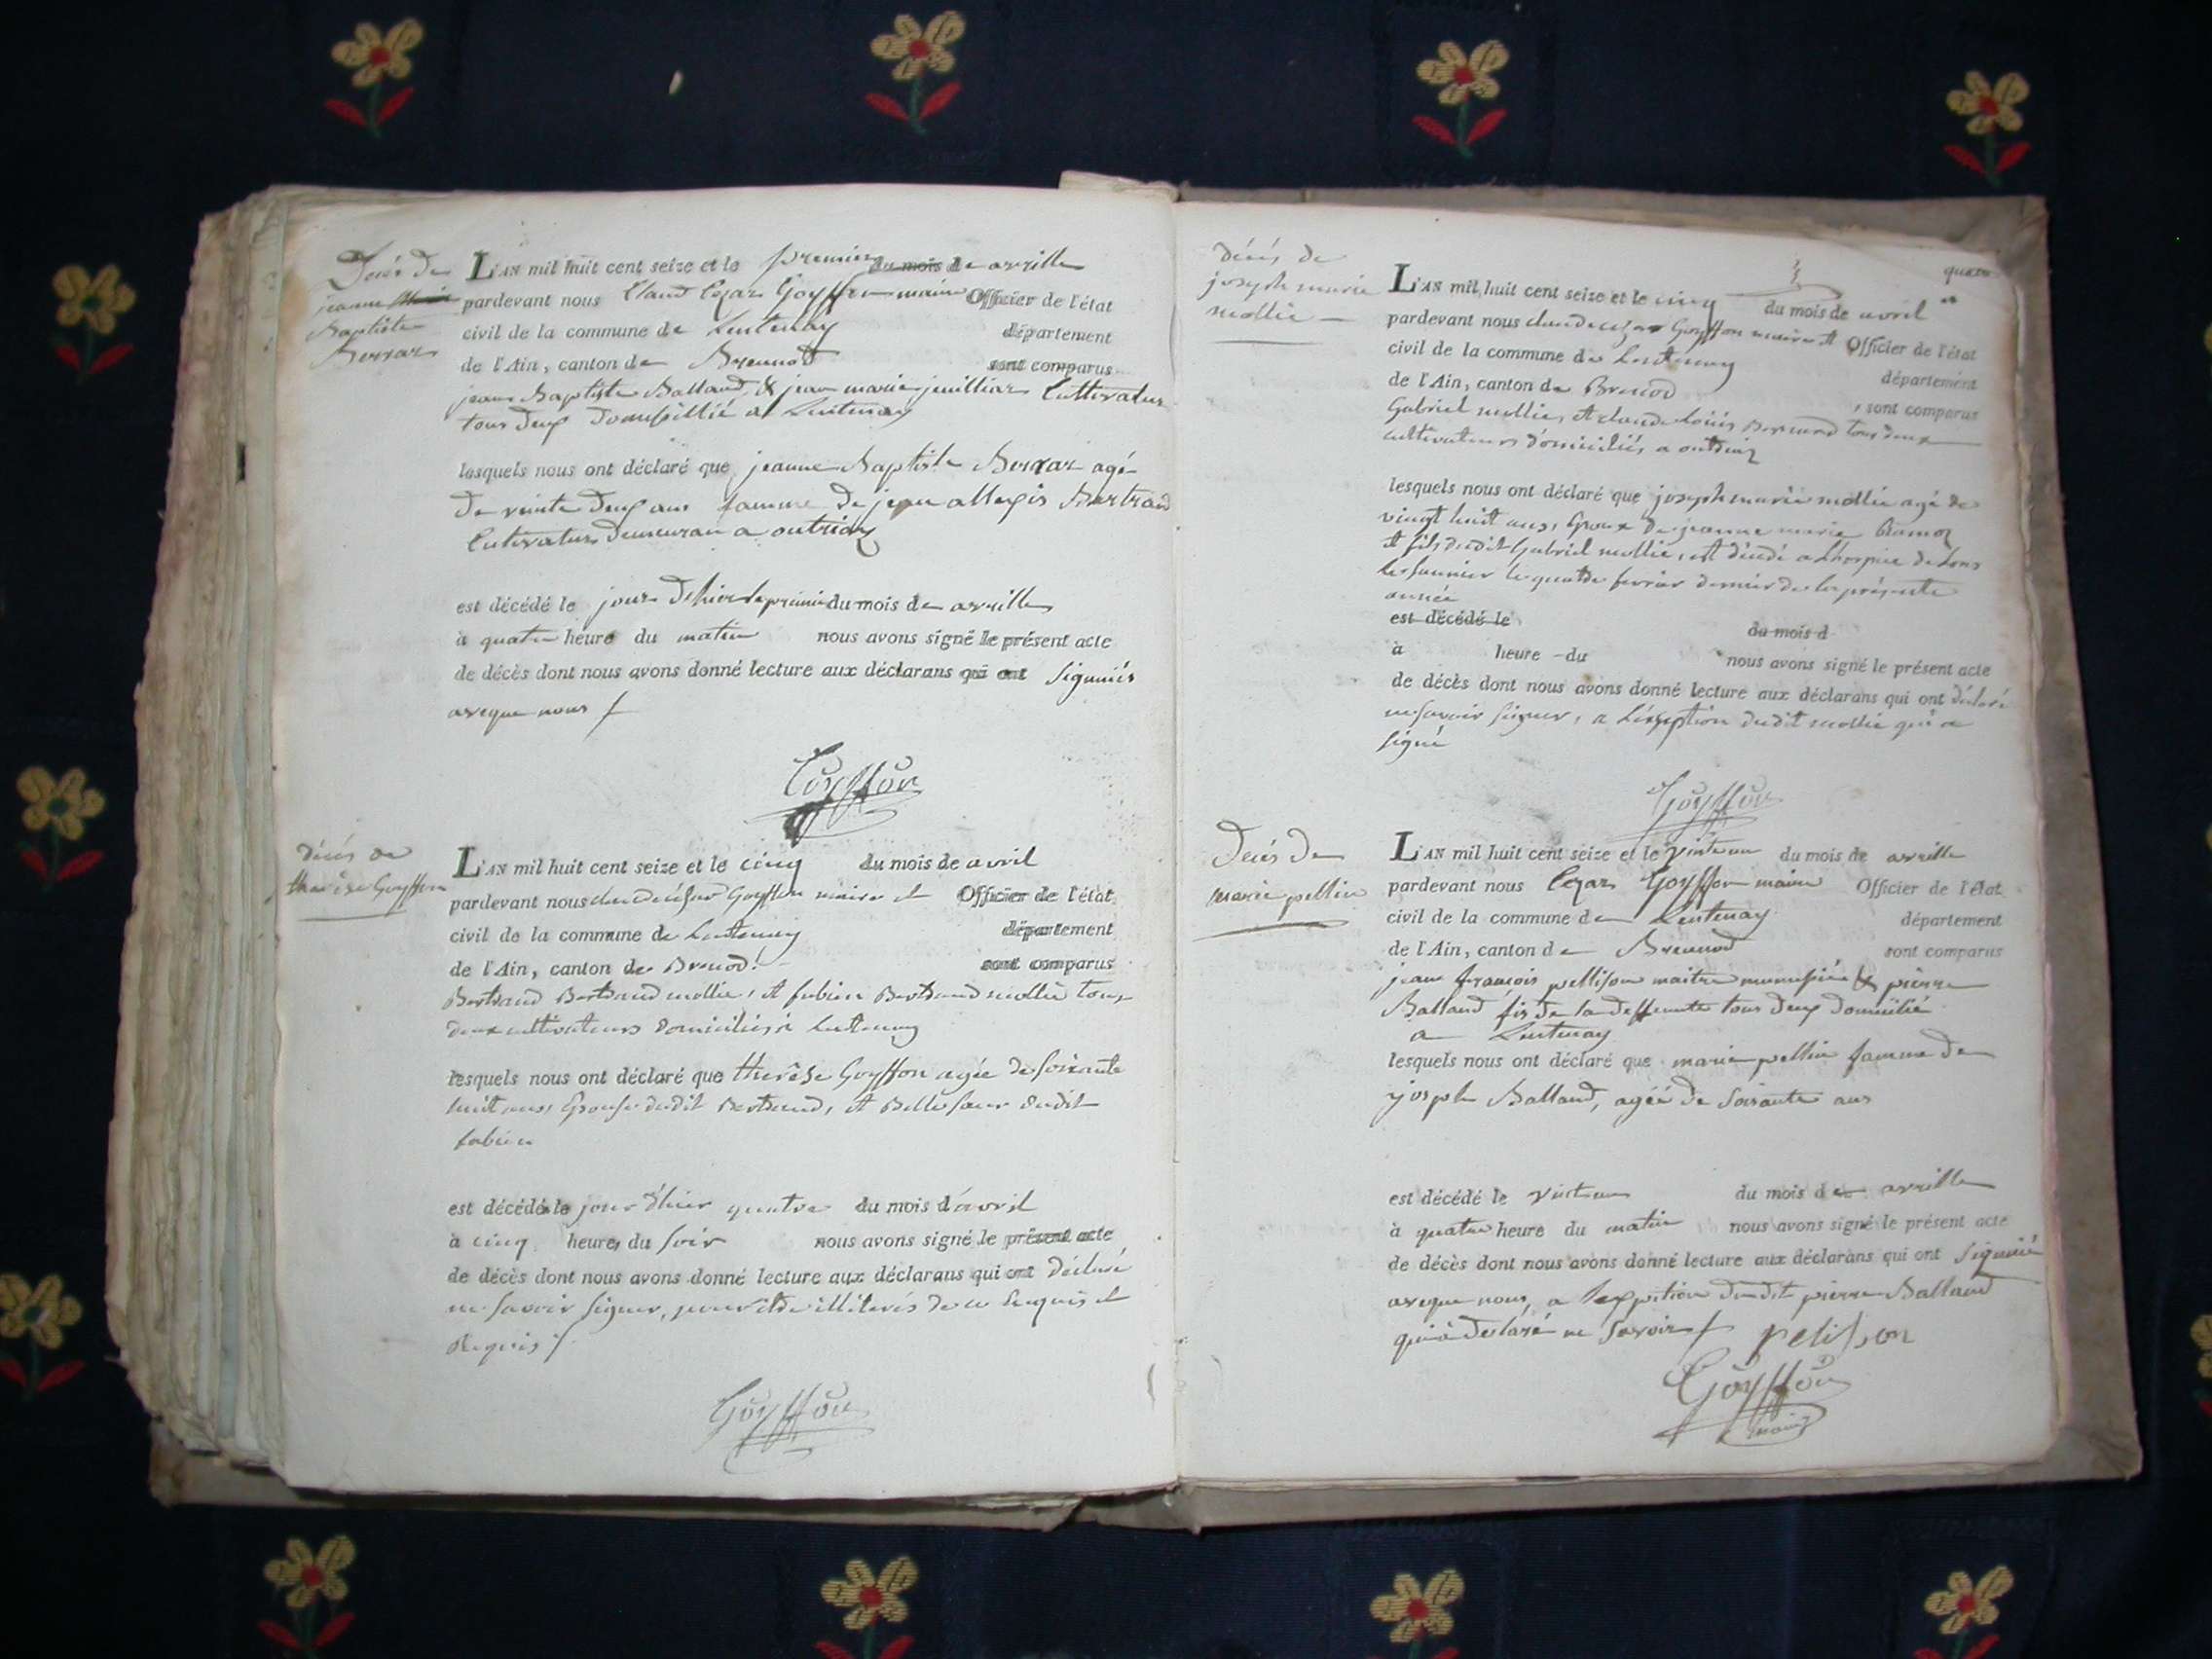 Décés De
jeanne
Baptiste
Berrar
L'AN mil huit cent seize et le premier du mois de avrille
pardevant nous Claud Cezar Goyffon maire Officier de l'état
civil de la commune de Lentenay département
de l'Ain, canton de Brennod sont comparus
jean Baptiste Balland & jean marie juilliar Cultivatur
tous deux domissillié a Lentenay
lesquels nous ont déclaré que jeanne Baptiste Berrar agé
De vinte Deux ans famme De jean allexis Bertrand
Cutivatur Demeuran a outriaz
est décédé le jour D'hier le premié du mois de avrille
à quatre heure du matin nous avons signé le présent acte
de décès dont nous avons donné lecture aux déclarans qui ont Signiés
aveque nous
Goyffon
décés de
thérèse Goyffon
L'AN mil huit cent seize et le cinq du mois de avril
pardevant nous claude cézar Goyffon maire et Officier de l'état
civil de la commune de Lentenay département
de l'Ain, canton de Brenod sont comparus
Bertrand Bertrand mollie, et fabien Bertrand mollie tous
deux cultivateurs domiciliés à Lentenay
lesquels nous ont déclaré que thérèse Goyffon agée de soixante
huit ans, Epouse dudit Bertrand, et Belle soeur dudit
fabien
est décédé le jour d'hier quatre du mois d'avril
à cinq heures du soir nous avons signé le présent acte
de décès dont nous avons donné lecture aux déclarans qui ont déclaré
ne savoir signer, pour être illiterés de ce Enquis et
Requis
Goyffon
décés de
joseph marie
mollie
L'AN mil huit cent seize et le cinq du mois de avril
pardevant nous claude cezar Goyffon maire et Officier de l'état
civil de la commune de Lentenay département
de l'Ain, canton de Brenod sont comparus
Gabriel mollie, et claude Louis Bernard tous deux
cultivateurs domiciliés a outriaz
lesquels nous ont déclaré que joseph marie mollie agé de
vingt huit ans, Epoux de jeanne marie
et fils dudit Gabriel mollie, est décédé a Lhospice de Lons
le saunier le quatre fevrier dernier de la présente
année
est décédé le du mois d
à heure du nous avons signé le présent acte
de décès dont nous avons donné lecture aux déclarans qui ont déclaré
ne savoir signer, a L'éxseption dudit mollie qui a
signé
Goyffon
Décés De
marie pellin
L'AN mil huit cent seize et le vinteun du mois de avrille
pardevant nous Cezar Goyffon maire Officier de l'état
civil de la commune de Lentenay département
de l'Ain, canton de Brennod sont comparus
jean françois pellison maitre & pierre
Balland fis De la tous deux domicilié
a Lentenay
lesquels nous ont déclaré que marie pellin famme De
joseph Balland, agéé De Soixante ans
est décédé le vinteun du mois de avrille
à quatre heure du matin nous avons signé le présent acte
de décès dont nous avons donné lecture aux déclarans qui ont Signié
aveque nous, a Du dit pierre Balland
qui à declaré ne Savoir pelisson
Goyffon
maire